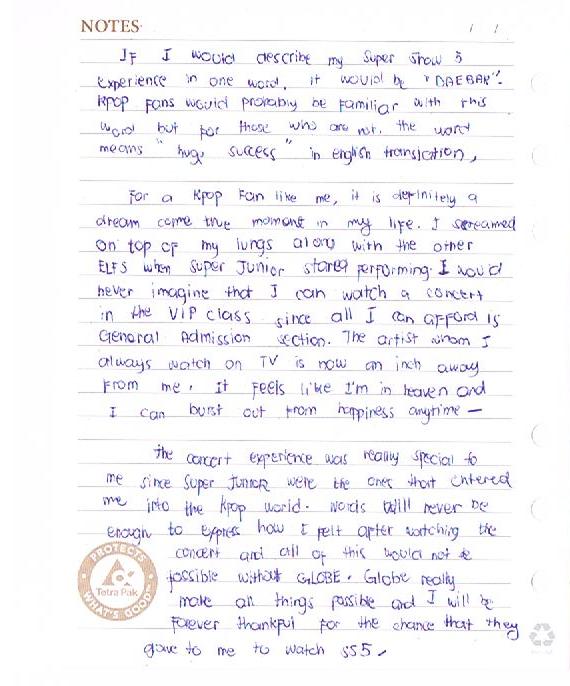 NOTES / /
If I would describe my Super Show 5
experience in one word, it would be "DAEBAK".
Kpop fans would probably be familiar with this
word but for those who are not, the word
means "huge success" in english translation,
For a Kpop Fan like me, it is definitely a
dream come true moment in my life. I screamed
on top of my lungs along with the other
ELFS when Super Junior stared performing. I would
never imagine that I can watch a concert
in the VIP class since all I can afford is
General Admission section. The artist whom I
always watch on TV is now an inch away
from me. It feels like I'm in heaven and
I can burst out from happiness anytime —
The concert experience was really special to
me since Super Junior were the ones that entered
me into the Kpop world. Words will never be
enough to express how I felt after watching the
concert and all of this would not be
possible without GLOBE. Globe really
make all things possible and I will be
forever thankful for the chance that they
gave to me to watch SS5.
PROTECTS
Tetra Pak
WHAT'S GOOD